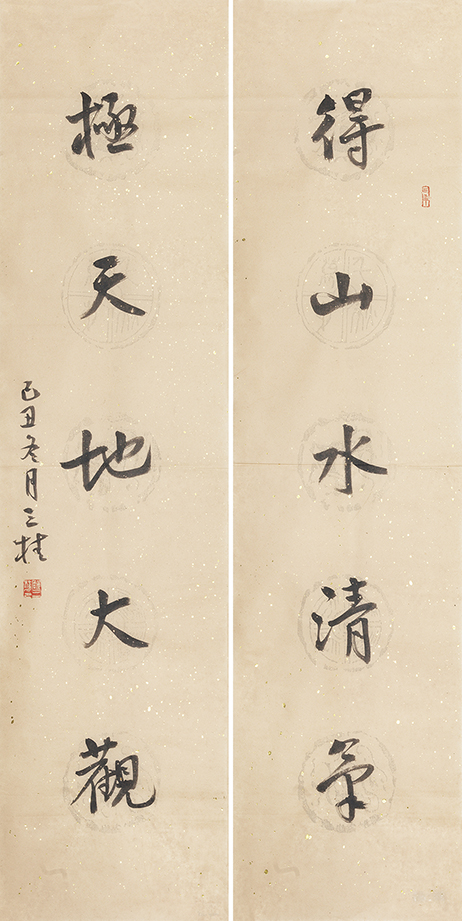 得山水清氣
極天地大觀
己丑冬月三桂